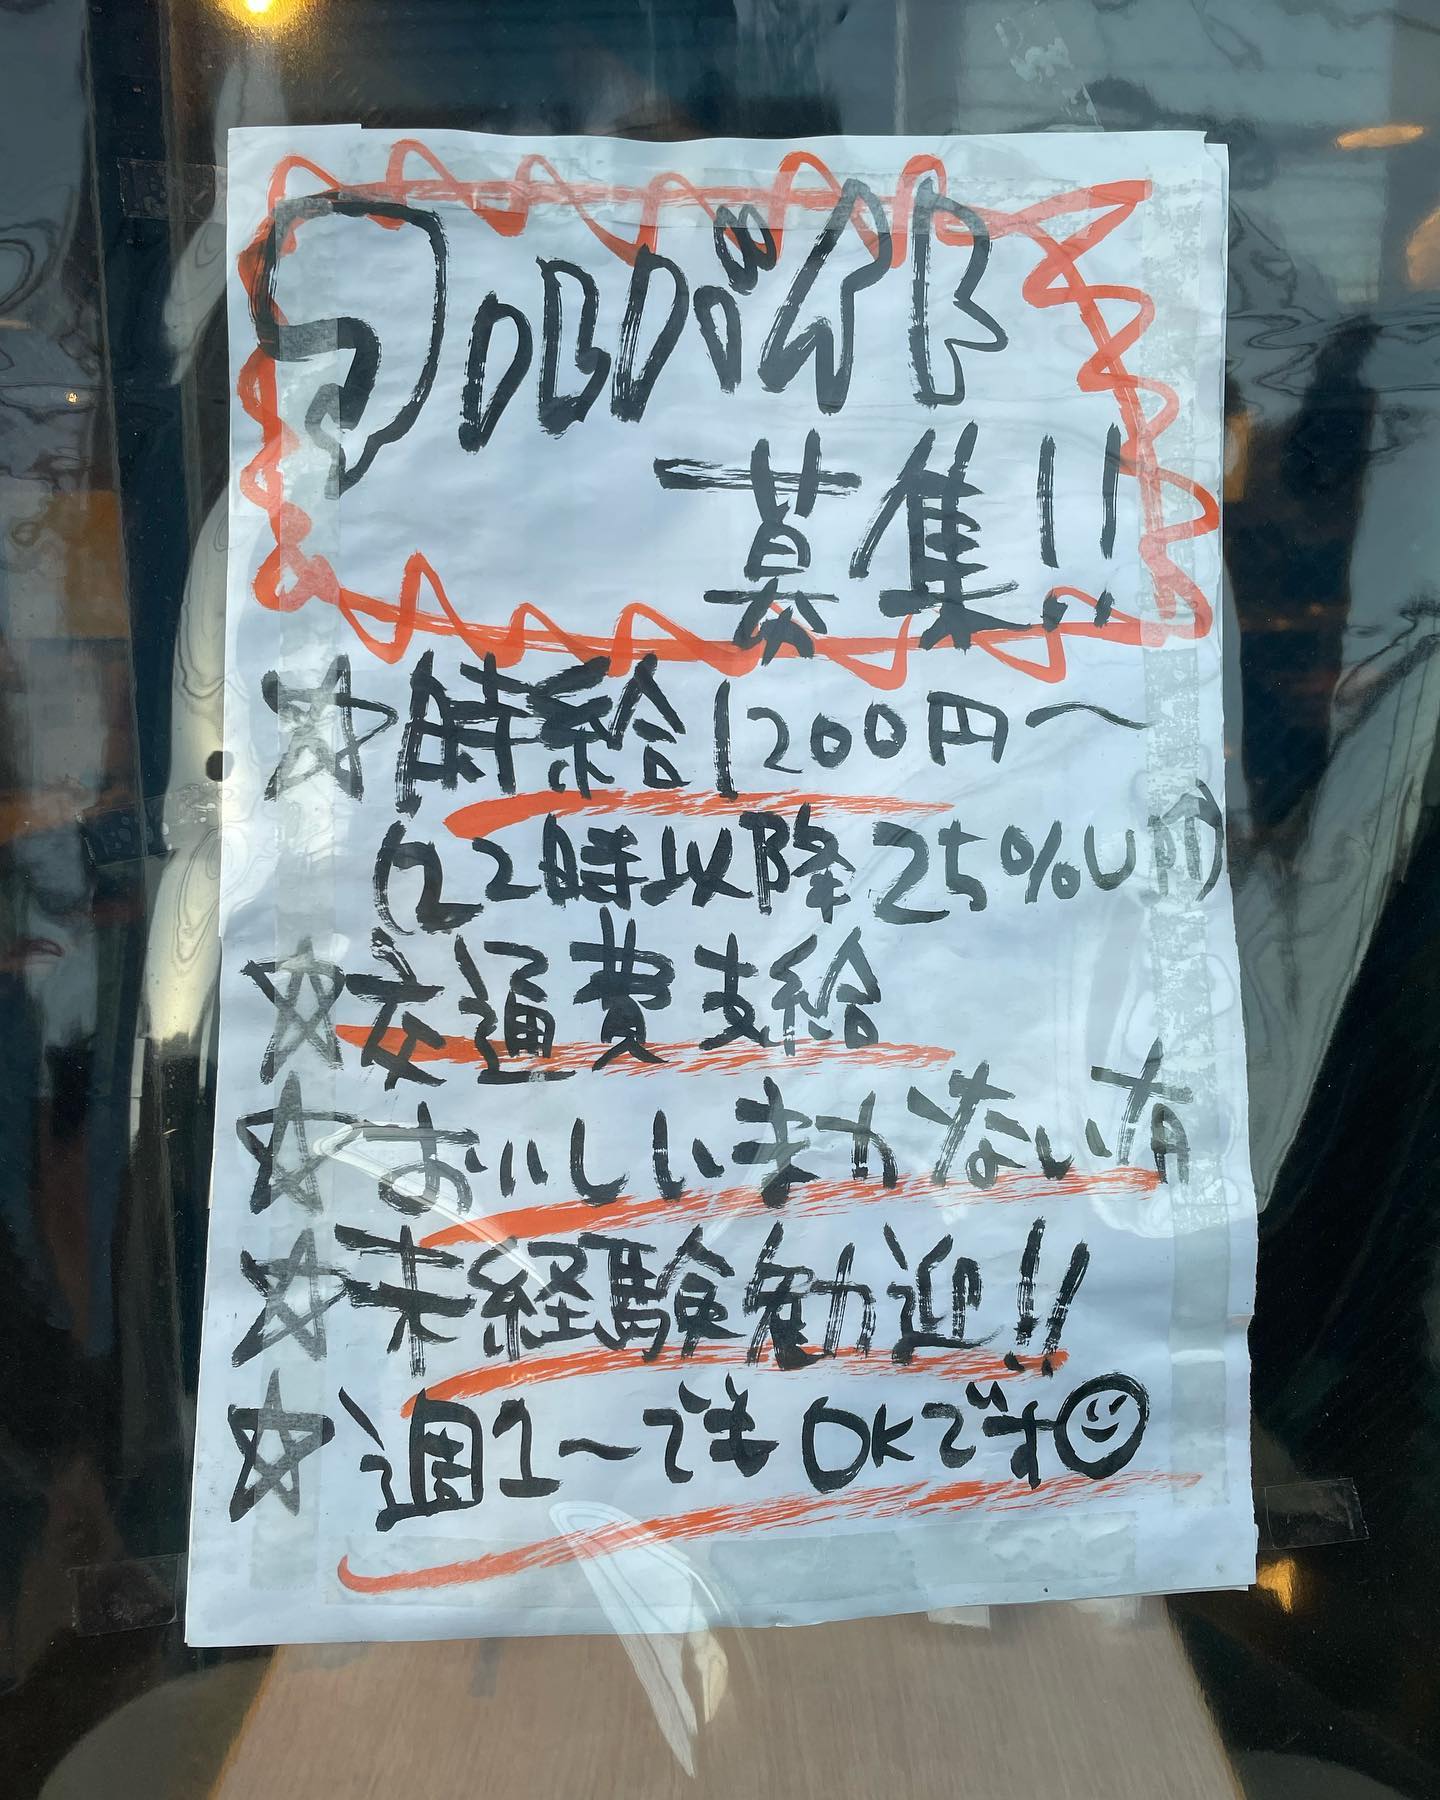 アルバイト
募集!!
☆時給1200円～
(22時以降25%UP!)
☆交通費支給
☆おいしいまかない有
☆未経験歓迎!!
☆週1～でもOKです☺